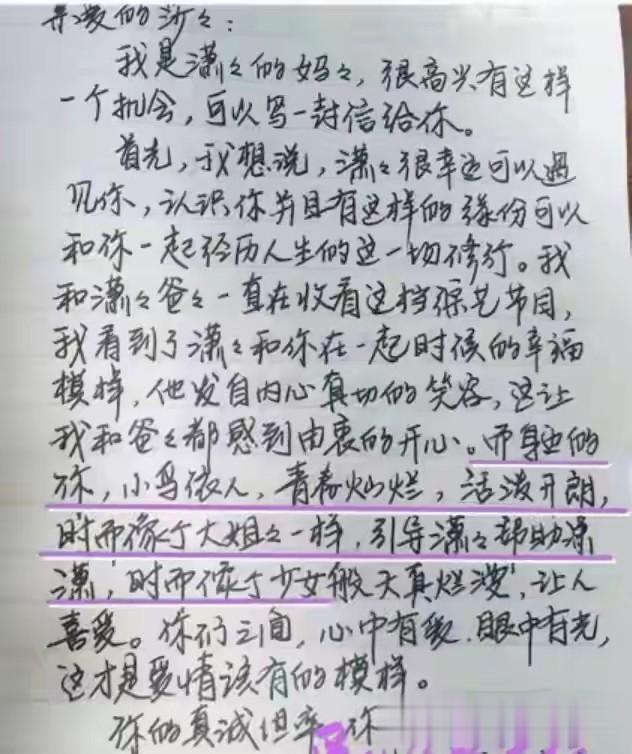 亲爱的沙々：
我是潇々的妈々，很高兴有这样
一个机会，可以写一封信给你。
首先，我想说，潇々很幸运可以遇
见你，认识你并且有这样的缘份可以
和你一起经历人生的这一场修行。我
和潇々爸々一直在收看这档综艺节目，
我看到了潇々和你在一起时候的幸福
模样，他发自内心真切的笑容，这让
我和爸々都感到由衷的开心。而身边的
你，小鸟依人，青春灿烂，活泼开朗，
时而像个大姐々一样，引导潇々帮助潇
潇，时而像个少女般天真烂漫，让人
喜爱。你们之间，心中有爱，眼中有光，
这才是爱情该有的模样。
你的真诚坦率 你